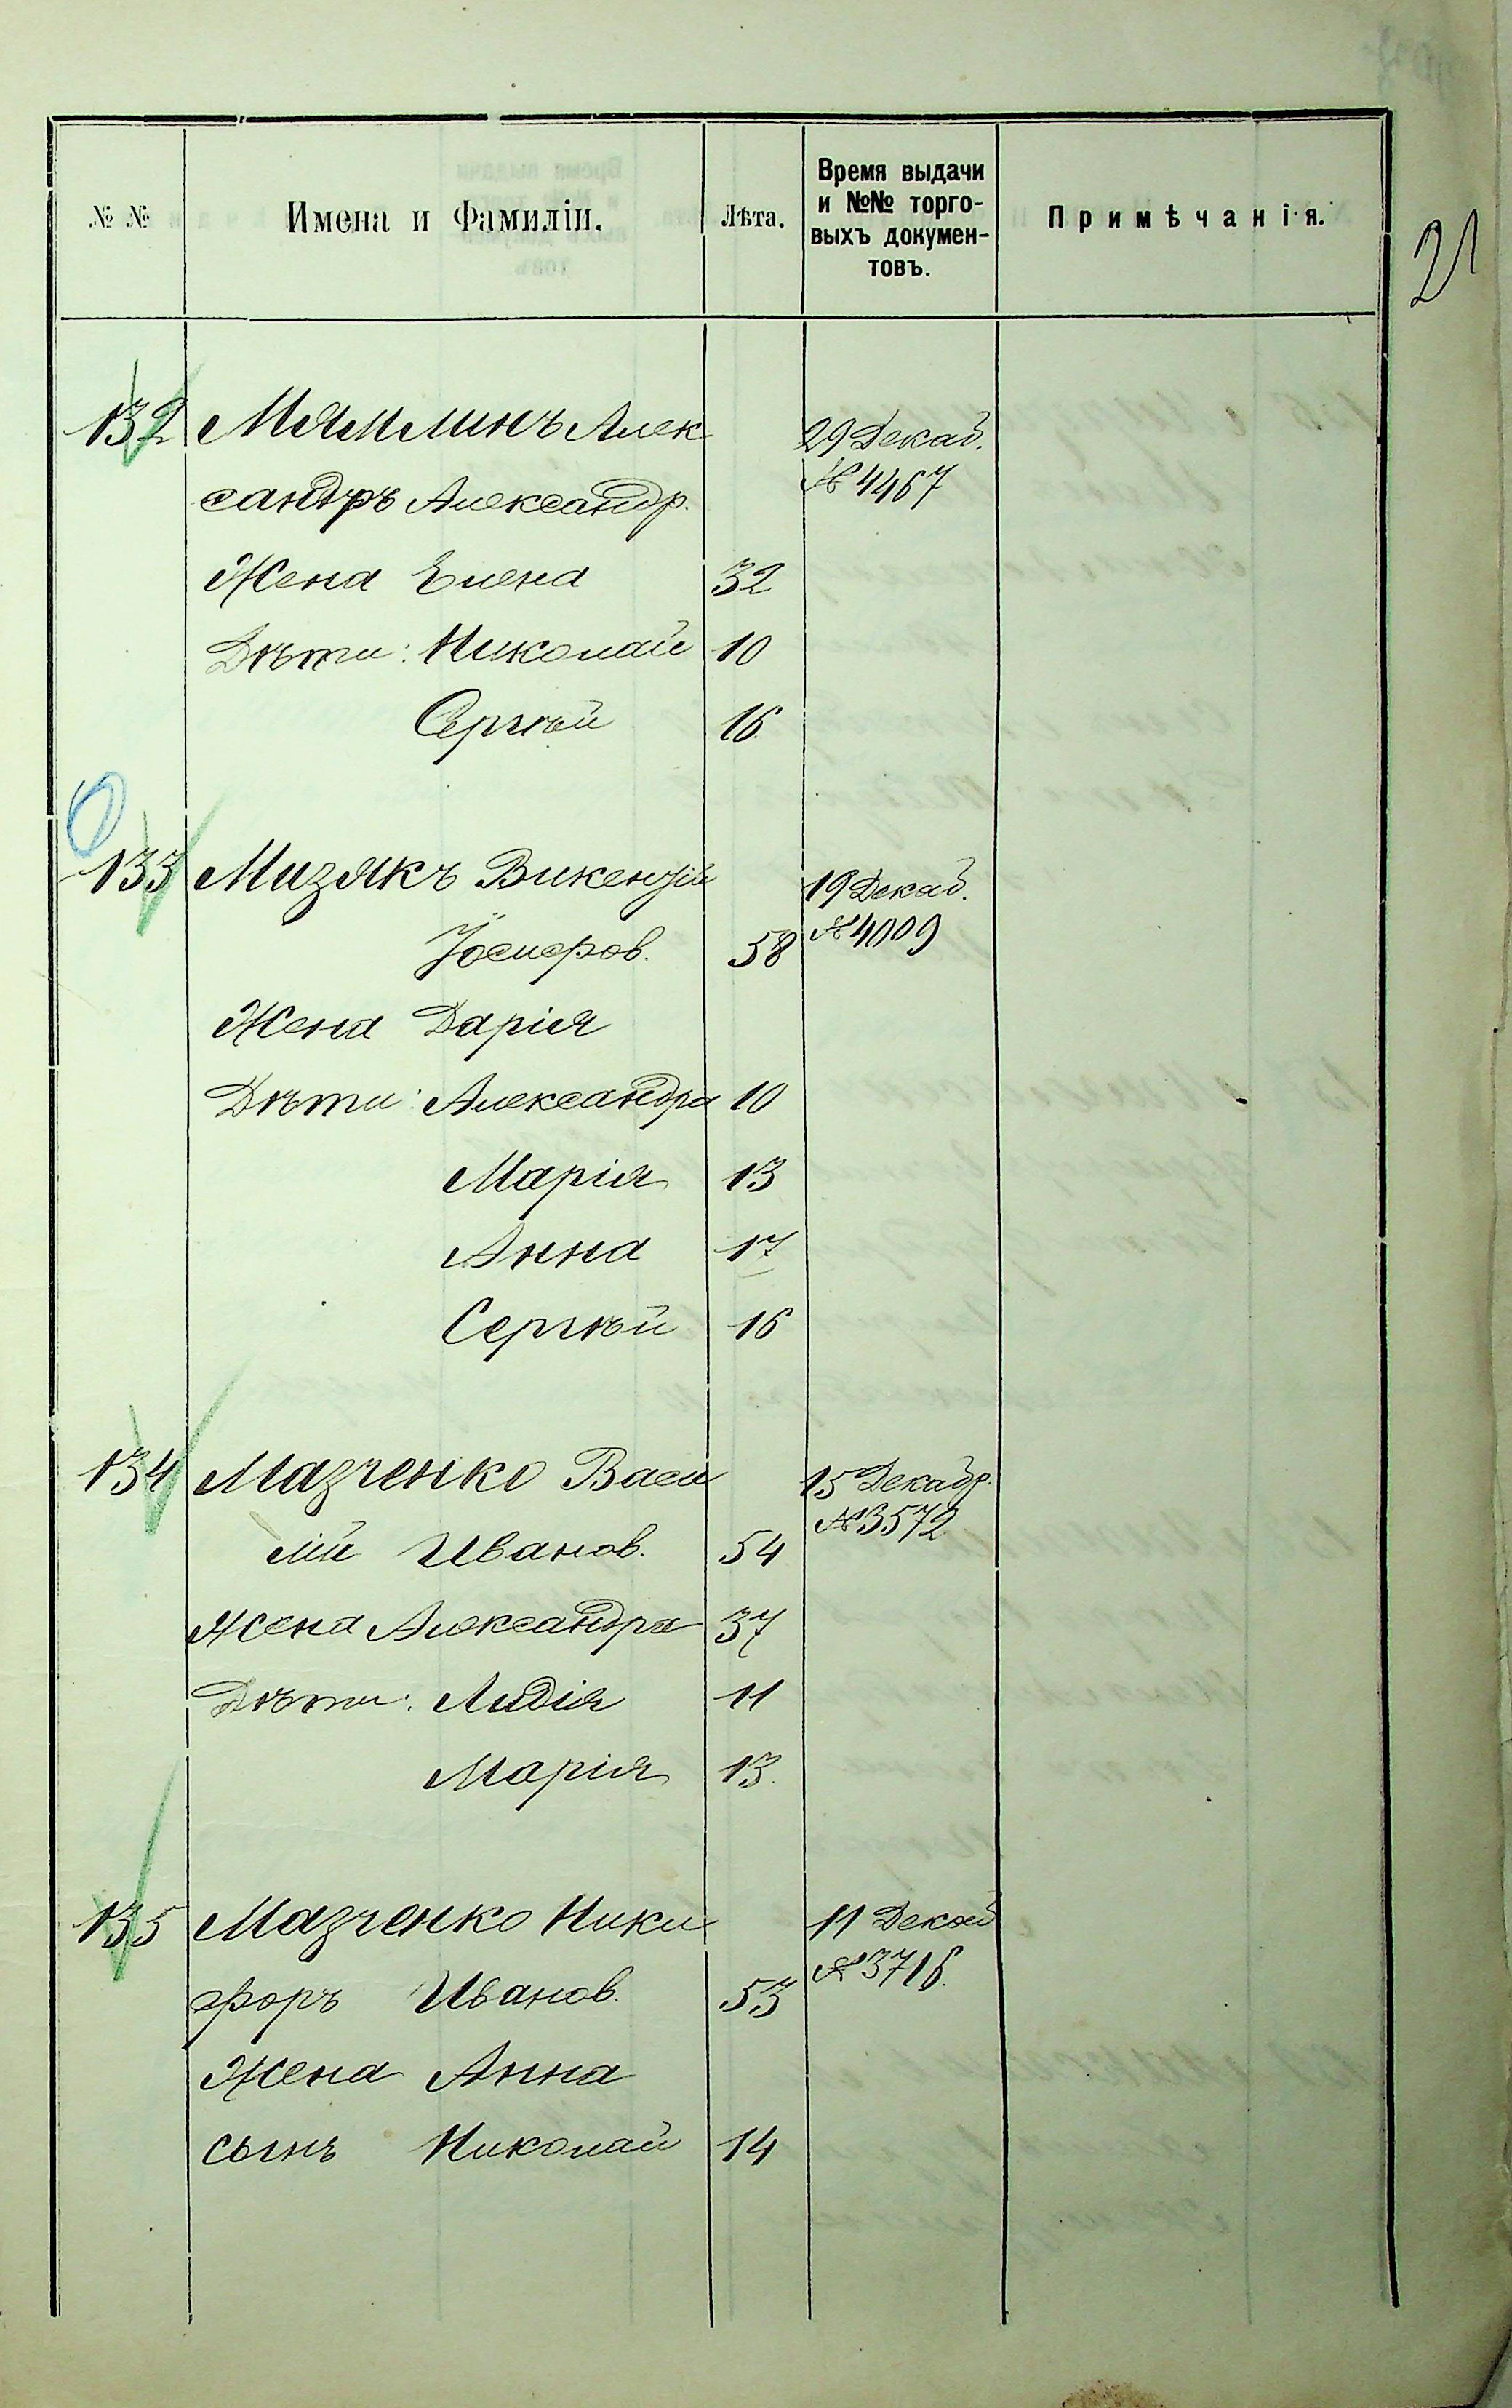 21
№ №
Имена и Фамиліи.
Лѣта.
Время выдачи
и №№ торго-
выхъ докумен-
товъ.
Примѣчанія.
132 Мямлинъ Алек 29 Декаб.
сандръ Александр. № 4467
Жена Елена 32
Дѣти: Николай 10
Сергѣй 16.
133 Мизякъ Викентій 19 Декаб.
Іосифов. 58 № 4009
Жена Дарія
Дѣти: Александра 10
Марія 13
Анна 17
Сергѣй 16
134 Мазченко Васи 15 Декабр.
лій Иванов. 54 № 3572
Жена Александра 37
Дѣти: Лидія 11
Марія 13.
135 Мазченко Ники 11 Декаб
форъ Иванов. 53 № 3716.
Жена Анна
сынъ Николай 14